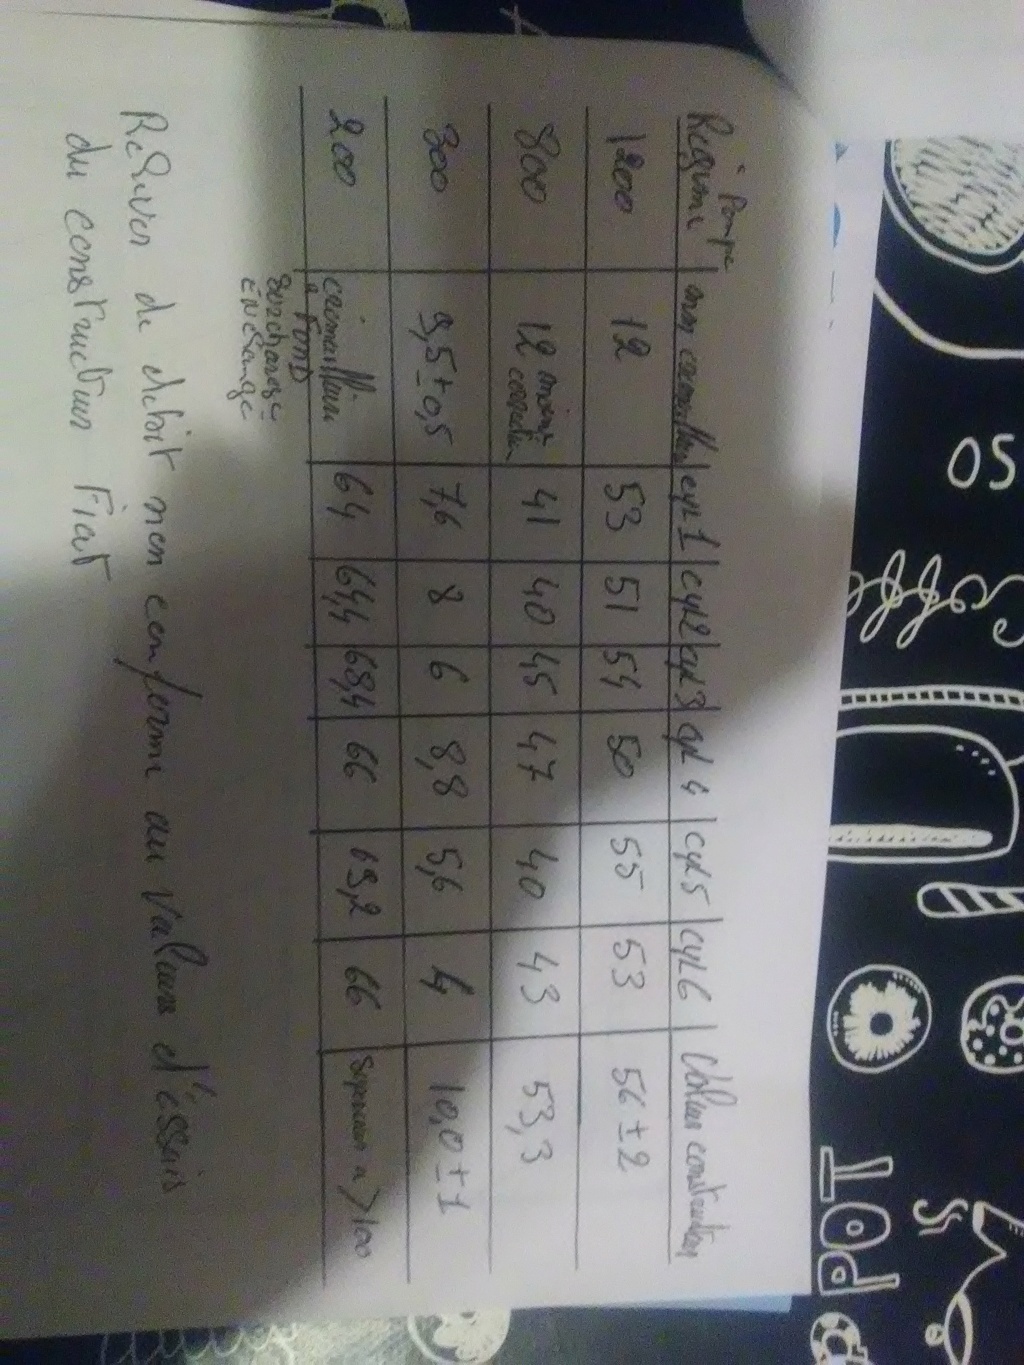 Pompe
Régime | mm crémaillère | cyl 1 | cyl 2 | cyl 3 | cyl 4 | cyl 5 | cyl 6 | Valeur constructeur
1200 | 12 | 53 | 51 | 54 | 50 | 55 | 53 | 56 ± 2
800 | 12 moins correction | 41 | 40 | 45 | 47 | 40 | 43 | 53,3
300 | 9,5 ± 0,5 | 7,6 | 8 | 6 | 8,8 | 5,6 | 4 | 10,0 ± 1
200 | crémaillère à FOND surcharge | 64 | 64,4 | 68,4 | 66 | 69,2 | 66 | > 100
de debit non conforme au valeurs d'éssais
du constructeur Fiat
SO
Coffee
TOP